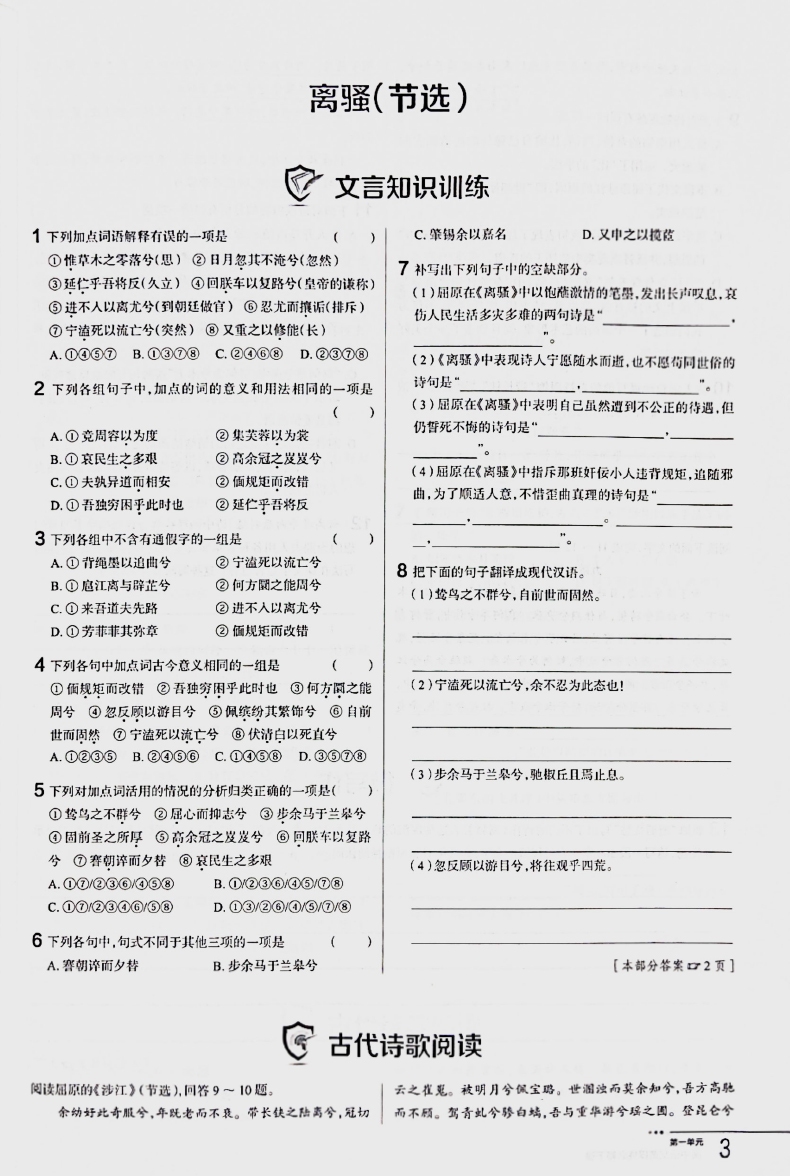 离骚(节选)
文言知识训练
1 下列加点词语解释有误的一项是 ( )
①惟草木之零落兮(思) ②日月忽其不淹兮(忽然)
③延伫乎吾将反(久立) ④回朕车以复路兮(皇帝的谦称)
⑤进不入以离尤兮(到朝廷做官) ⑥忍尤而攘诟(排斥)
⑦宁溘死以流亡兮(突然) ⑧又重之以修能(长)
A.①④⑤⑦ B.①③⑦⑧ C.②④⑥⑧ D.②③⑦⑧
2 下列各组句子中,加点的词的意义和用法相同的一项是
( )
A.①竞周容以为度 ②集芙蓉以为裳
B.①哀民生之多艰 ②高余冠之岌岌兮
C.①夫孰异道而相安 ②偭规矩而改错
D.①吾独穷困乎此时也 ②延伫乎吾将反
3 下列各组中不含有通假字的一组是 ( )
A.①背绳墨以追曲兮 ②宁溘死以流亡兮
B.①扈江离与辟芷兮 ②何方圜之能周兮
C.①来吾道夫先路 ②进不入以离尤兮
D.①芳菲菲其弥章 ②偭规矩而改错
4 下列各句中加点词古今意义相同的一组是 ( )
①偭规矩而改错 ②吾独穷困乎此时也 ③何方圜之能
周兮 ④忽反顾以游目兮 ⑤佩缤纷其繁饰兮 ⑥自前
世而固然 ⑦宁溘死以流亡兮 ⑧伏清白以死直兮
A.①②③⑤ B.②④⑤⑥ C.①④⑤⑧ D.③⑤⑦⑧
5 下列对加点词活用的情况的分析归类正确的一项是( )
①鸷鸟之不群兮 ②屈心而抑志兮 ③步余马于兰皋兮
④固前圣之所厚 ⑤高余冠之岌岌兮 ⑥回朕车以复路
兮 ⑦謇朝谇而夕替 ⑧哀民生之多艰
A.①⑦/②③⑥/④⑤⑧ B.①/②③⑥/④⑤/⑦⑧
C.①⑦/②③④⑥/⑤⑧ D.①③/②⑥/④/⑤/⑦/⑧
6 下列各句中,句式不同于其他三项的一项是 ( )
A.謇朝谇而夕替 B.步余马于兰皋兮
C.肇锡余以嘉名 D.又申之以揽茝
7 补写出下列句子中的空缺部分。
(1)屈原在《离骚》中以饱蘸激情的笔墨,发出长声叹息,哀
伤人民生活多灾多难的两句诗是“____________,
____________”。
(2)《离骚》中表现诗人宁愿随水而逝,也不愿苟同世俗的
诗句是“____________,____________”。
(3)屈原在《离骚》中表明自己虽然遭到不公正的待遇,但
仍誓死不悔的诗句是“____________,______
______”。
(4)屈原在《离骚》中指斥那班奸佞小人违背规矩,追随邪
曲,为了顺适人意,不惜歪曲真理的诗句是“______
______,____________。______
__,____________”。
8 把下面的句子翻译成现代汉语。
(1)鸷鸟之不群兮,自前世而固然。
(2)宁溘死以流亡兮,余不忍为此态也!
(3)步余马于兰皋兮,驰椒丘且焉止息。
(4)忽反顾以游目兮,将往观乎四荒。
[本部分答案☞2页]
古代诗歌阅读
阅读屈原的《涉江》(节选),回答9～10题。
余幼好此奇服兮,年既老而不衰。带长铗之陆离兮,冠切
云之崔嵬。被明月兮佩宝璐。世溷浊而莫余知兮,吾方高驰
而不顾。驾青虬兮骖白螭,吾与重华游兮瑶之圃。登昆仑兮
第一单元 3